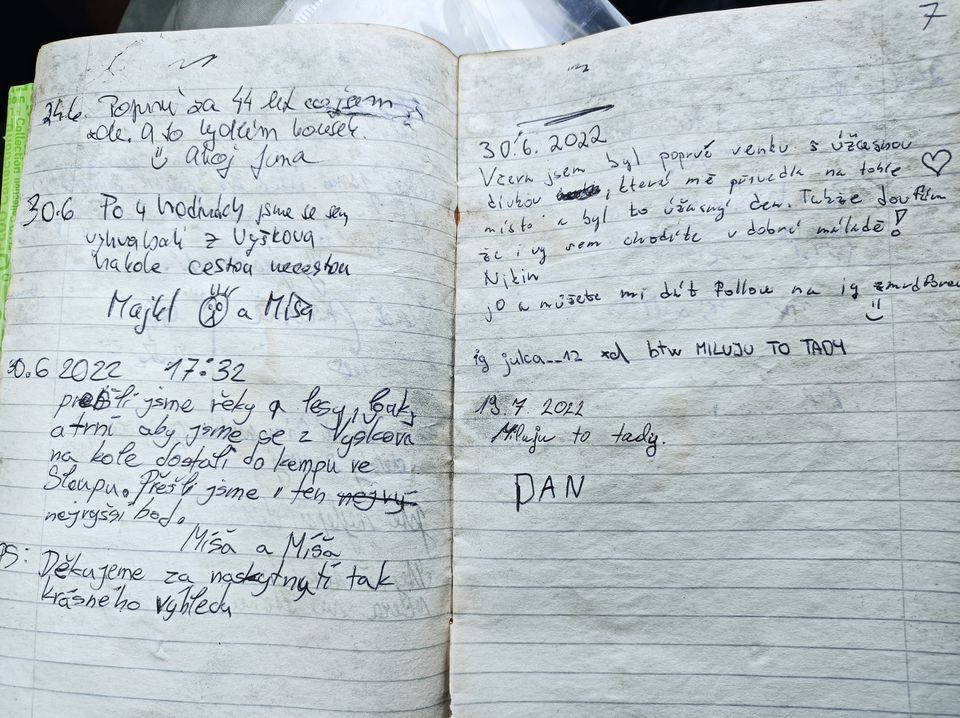 24.6. Poprvé za 44 let jsem
zde. a to lydkém kousek.
Ahoj Jana
30.6 Po 4 hodinách jsme se sem
vyhrabali z Vyškova
nakole cestou necestou
Majkl a Míša
30.6 2022 17:32
přešli jsme řeky a lesy, louky
a trní aby jsme se z Vyškova
na kole dostali do kempu ve
Sloupu. Přešli jsme i ten nejvý-
nejvyšší bod.
Míša a Míša
PS: Děkujeme za naskytnutí tak
krásného výhledu
7
30.6. 2022
Včera jsem byl poprvé venku s úžasnou
dívkou, která mě přivedla na tohle
místo a byl to úžasný den. Takže doufám
že i vy sem chodíte v dobré náladě!
Nikin
jo a můžete mi dát follow na ig
ig julca__12 xd btw MILUJU TO TADY
19.7 2022
Miluju to tady.
DAN
Collection